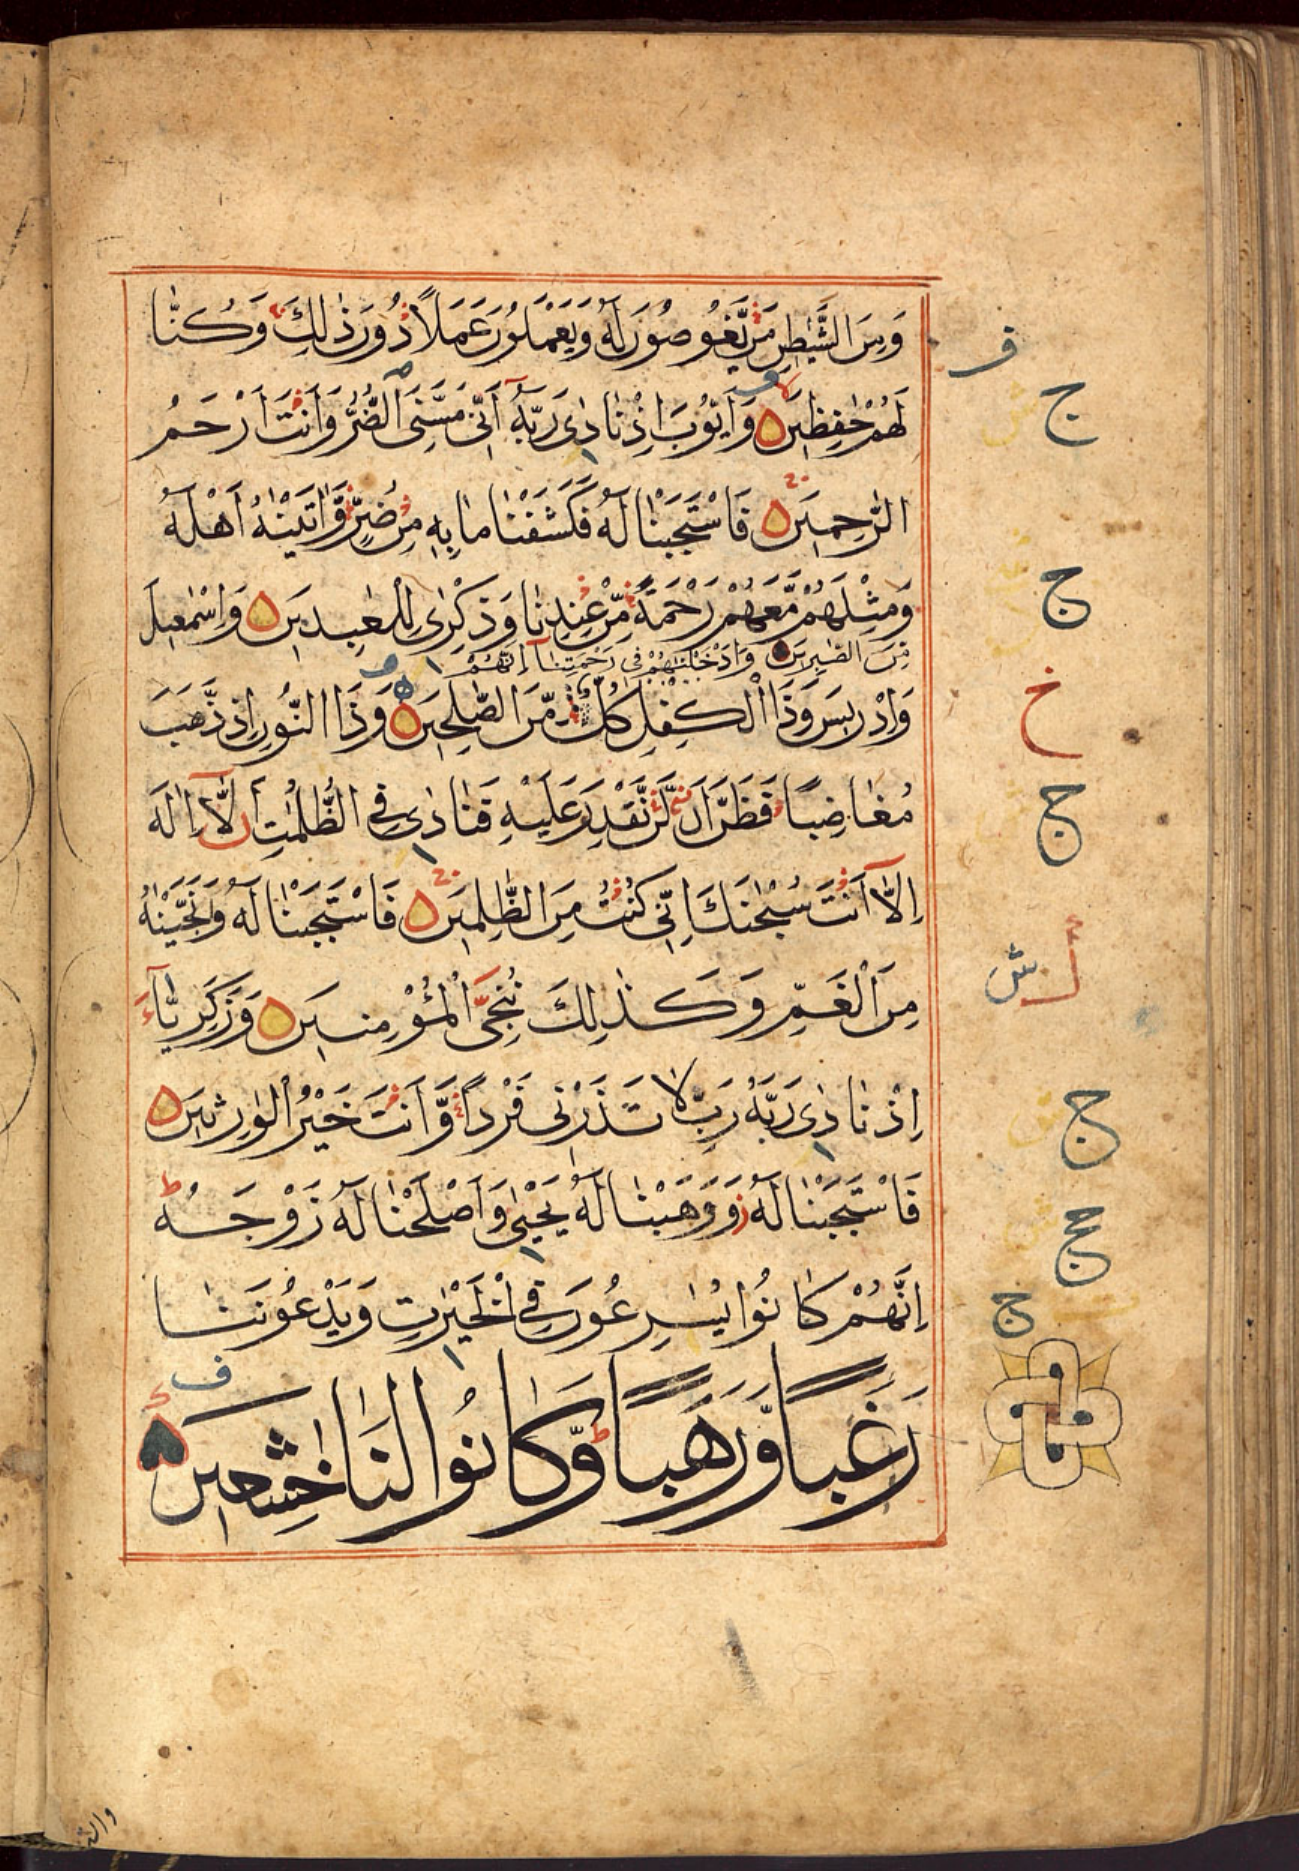 وَمِنَ الشَّيٰطِينِ مَنْ يَّغُوصُونَ لَهٗ وَيَعْمَلُونَ عَمَلًا دُونَ ذٰلِكَ وَكُنَّا
ف
لَهُمْ حٰفِظِينَ وَاَيُّوبَ اِذْ نَادٰى رَبَّهٗٓ اَنِّى مَسَّنِىَ الضُّرُّ وَاَنْتَ اَرْحَمُ
ج
الرّٰحِمِينَ فَاسْتَجَبْنَا لَهٗ فَكَشَفْنَا مَا بِهٖ مِنْ ضُرٍّ وَّاٰتَيْنٰهُ اَهْلَهٗ
وَمِثْلَهُمْ مَّعَهُمْ رَحْمَةً مِّنْ عِنْدِنَا وَذِكْرٰى لِلْعٰبِدِينَ وَاِسْمٰعِيلَ
ج
مِنَ الصّٰبِرِينَ وَاَدْخَلْنٰهُمْ فِى رَحْمَتِنَآ اِنَّهُمْ
وَاِدْرِيسَ وَذَا الْكِفْلِ كُلٌّ مِّنَ الصّٰلِحِينَ وَذَا النُّونِ اِذْ ذَّهَبَ
خ
مُغَاضِبًا فَظَنَّ اَنْ لَّنْ نَّقْدِرَ عَلَيْهِ فَنَادٰى فِى الظُّلُمٰتِ اَنْ لَّآ اِلٰهَ
ج
اِلَّآ اَنْتَ سُبْحٰنَكَ اِنِّى كُنْتُ مِنَ الظّٰلِمِينَ فَاسْتَجَبْنَا لَهٗ وَنَجَّيْنٰهُ
مِنَ الْغَمِّ وَكَذٰلِكَ نُنْجِى الْمُؤْمِنِينَ وَزَكَرِيَّآءَ
ش
اِذْ نَادٰى رَبَّهٗ رَبِّ لَا تَذَرْنِى فَرْدًا وَّاَنْتَ خَيْرُ الْوٰرِثِينَ
ج
فَاسْتَجَبْنَا لَهٗ وَوَهَبْنَا لَهٗ يَحْيٰى وَاَصْلَحْنَا لَهٗ زَوْجَهٗ
اِنَّهُمْ كَانُوا يُسٰرِعُونَ فِى الْخَيْرٰتِ وَيَدْعُونَنَا
ج
رَغَبًا وَّرَهَبًا وَّكَانُوا لَنَا خٰشِعِينَ